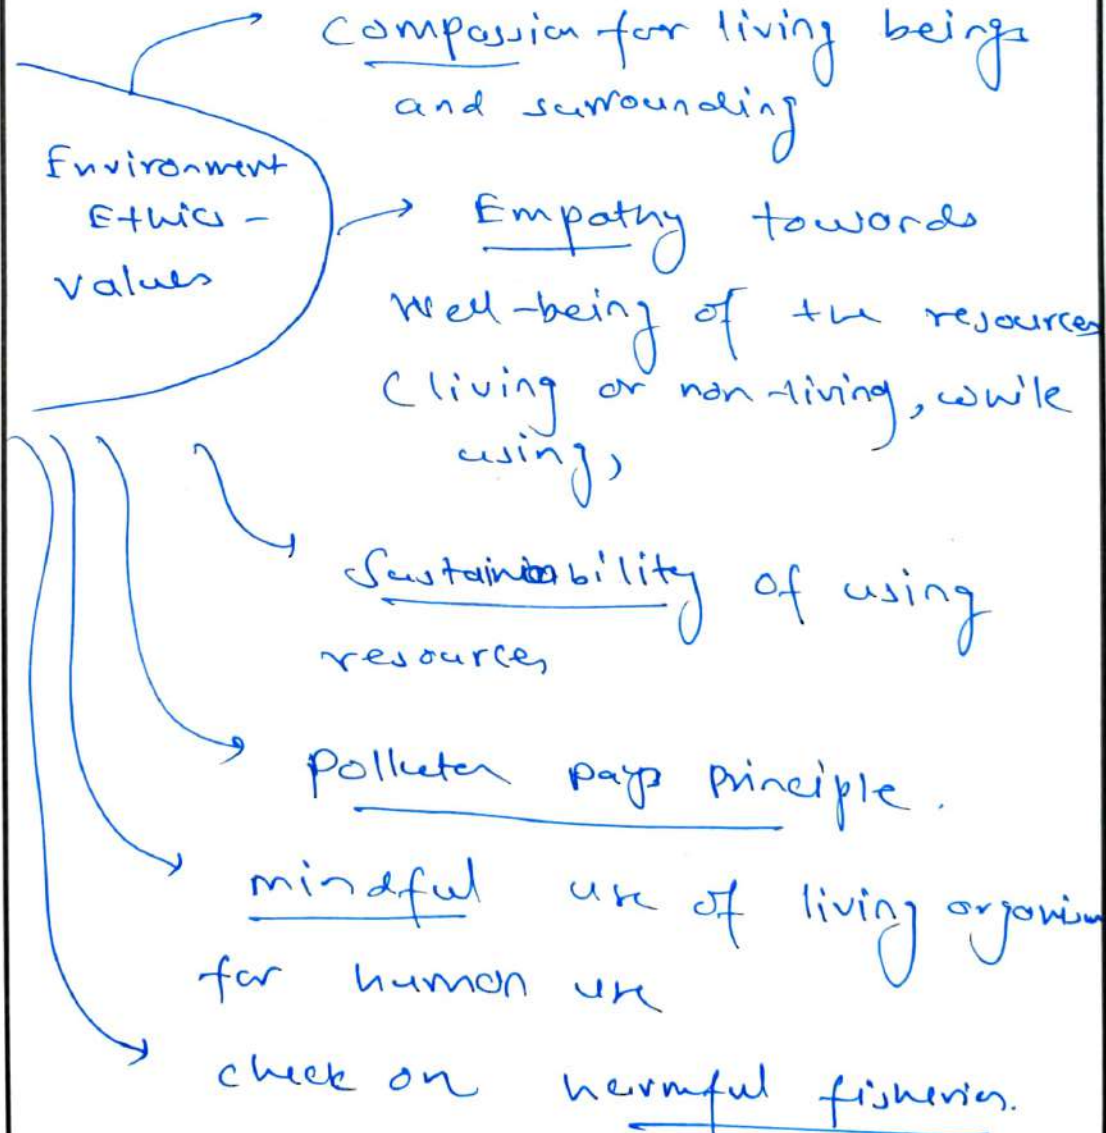 Compassion for living beings
and surrounding
Environment
Ethics -
values
Empathy towards
Well-being of the resources
(living or non-living, while
using)
Sustainability of using
resources
Polluter pays principle.
mindful use of living organism
for human use
check on harmful fisheries.